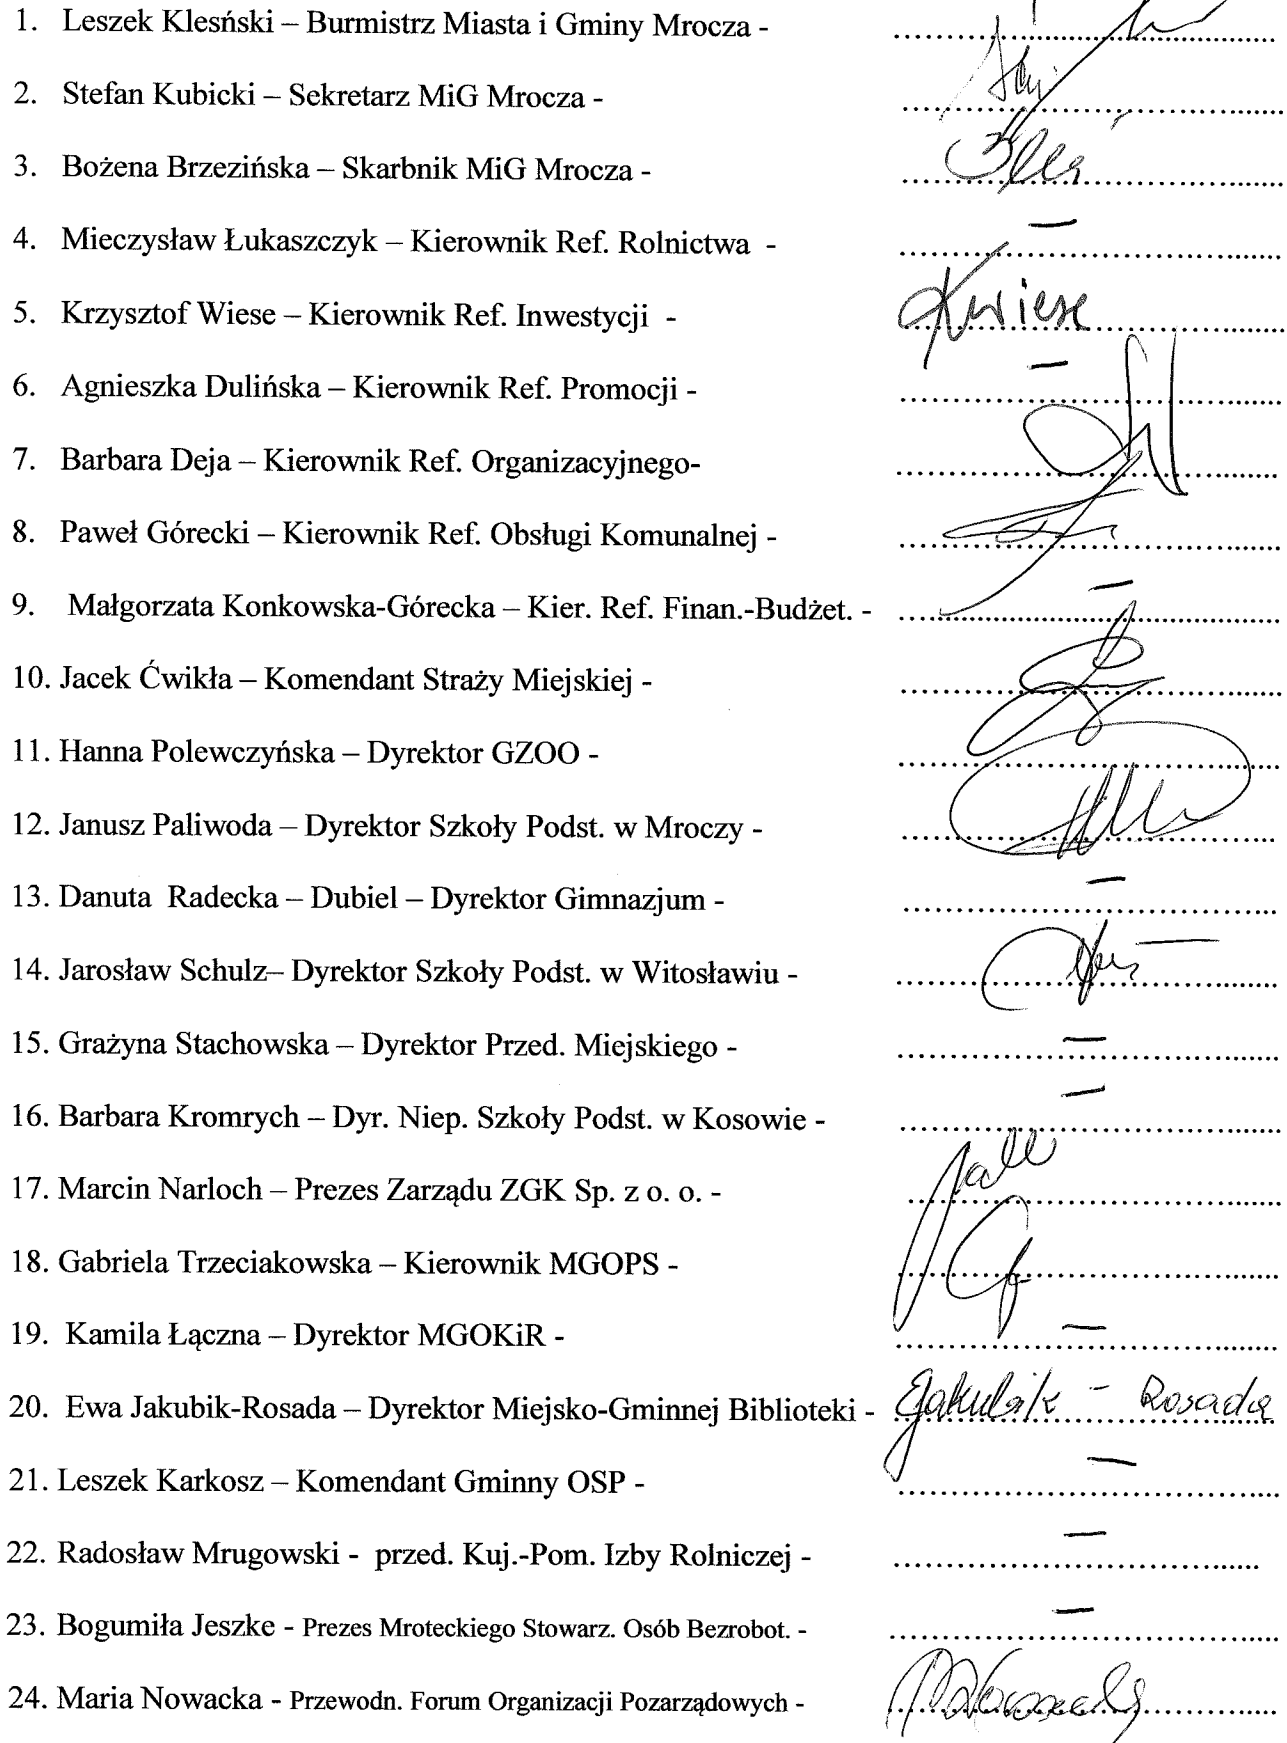 1. Leszek Klesński – Burmistrz Miasta i Gminy Mrocza - ........................
2. Stefan Kubicki – Sekretarz MiG Mrocza - ........................
3. Bożena Brzezińska – Skarbnik MiG Mrocza - ........................
4. Mieczysław Łukaszczyk – Kierownik Ref. Rolnictwa - ........................ —
5. Krzysztof Wiese – Kierownik Ref. Inwestycji - ........................ KWiese
6. Agnieszka Dulińska – Kierownik Ref. Promocji - ........................ —
7. Barbara Deja – Kierownik Ref. Organizacyjnego- ........................
8. Paweł Górecki – Kierownik Ref. Obsługi Komunalnej - ........................
9. Małgorzata Konkowska-Górecka – Kier. Ref. Finan.-Budżet. - ........................ —
10. Jacek Ćwikła – Komendant Straży Miejskiej - ........................
11. Hanna Polewczyńska – Dyrektor GZOO - ........................
12. Janusz Paliwoda – Dyrektor Szkoły Podst. w Mroczy - ........................
13. Danuta Radecka – Dubiel – Dyrektor Gimnazjum - ........................ —
14. Jarosław Schulz– Dyrektor Szkoły Podst. w Witosławiu - ........................
15. Grażyna Stachowska – Dyrektor Przed. Miejskiego - ........................ —
16. Barbara Kromrych – Dyr. Niep. Szkoły Podst. w Kosowie - ........................ —
17. Marcin Narloch – Prezes Zarządu ZGK Sp. z o. o. - ........................
18. Gabriela Trzeciakowska – Kierownik MGOPS - ........................
19. Kamila Łączna – Dyrektor MGOKiR - ........................ —
20. Ewa Jakubik-Rosada – Dyrektor Miejsko-Gminnej Biblioteki - ........................ EJakubik - Rosada
21. Leszek Karkosz – Komendant Gminny OSP - ........................ —
22. Radosław Mrugowski - przed. Kuj.-Pom. Izby Rolniczej - ........................ —
23. Bogumiła Jeszke - Prezes Mroteckiego Stowarz. Osób Bezrobot. - ........................ —
24. Maria Nowacka - Przewodn. Forum Organizacji Pozarządowych - ........................